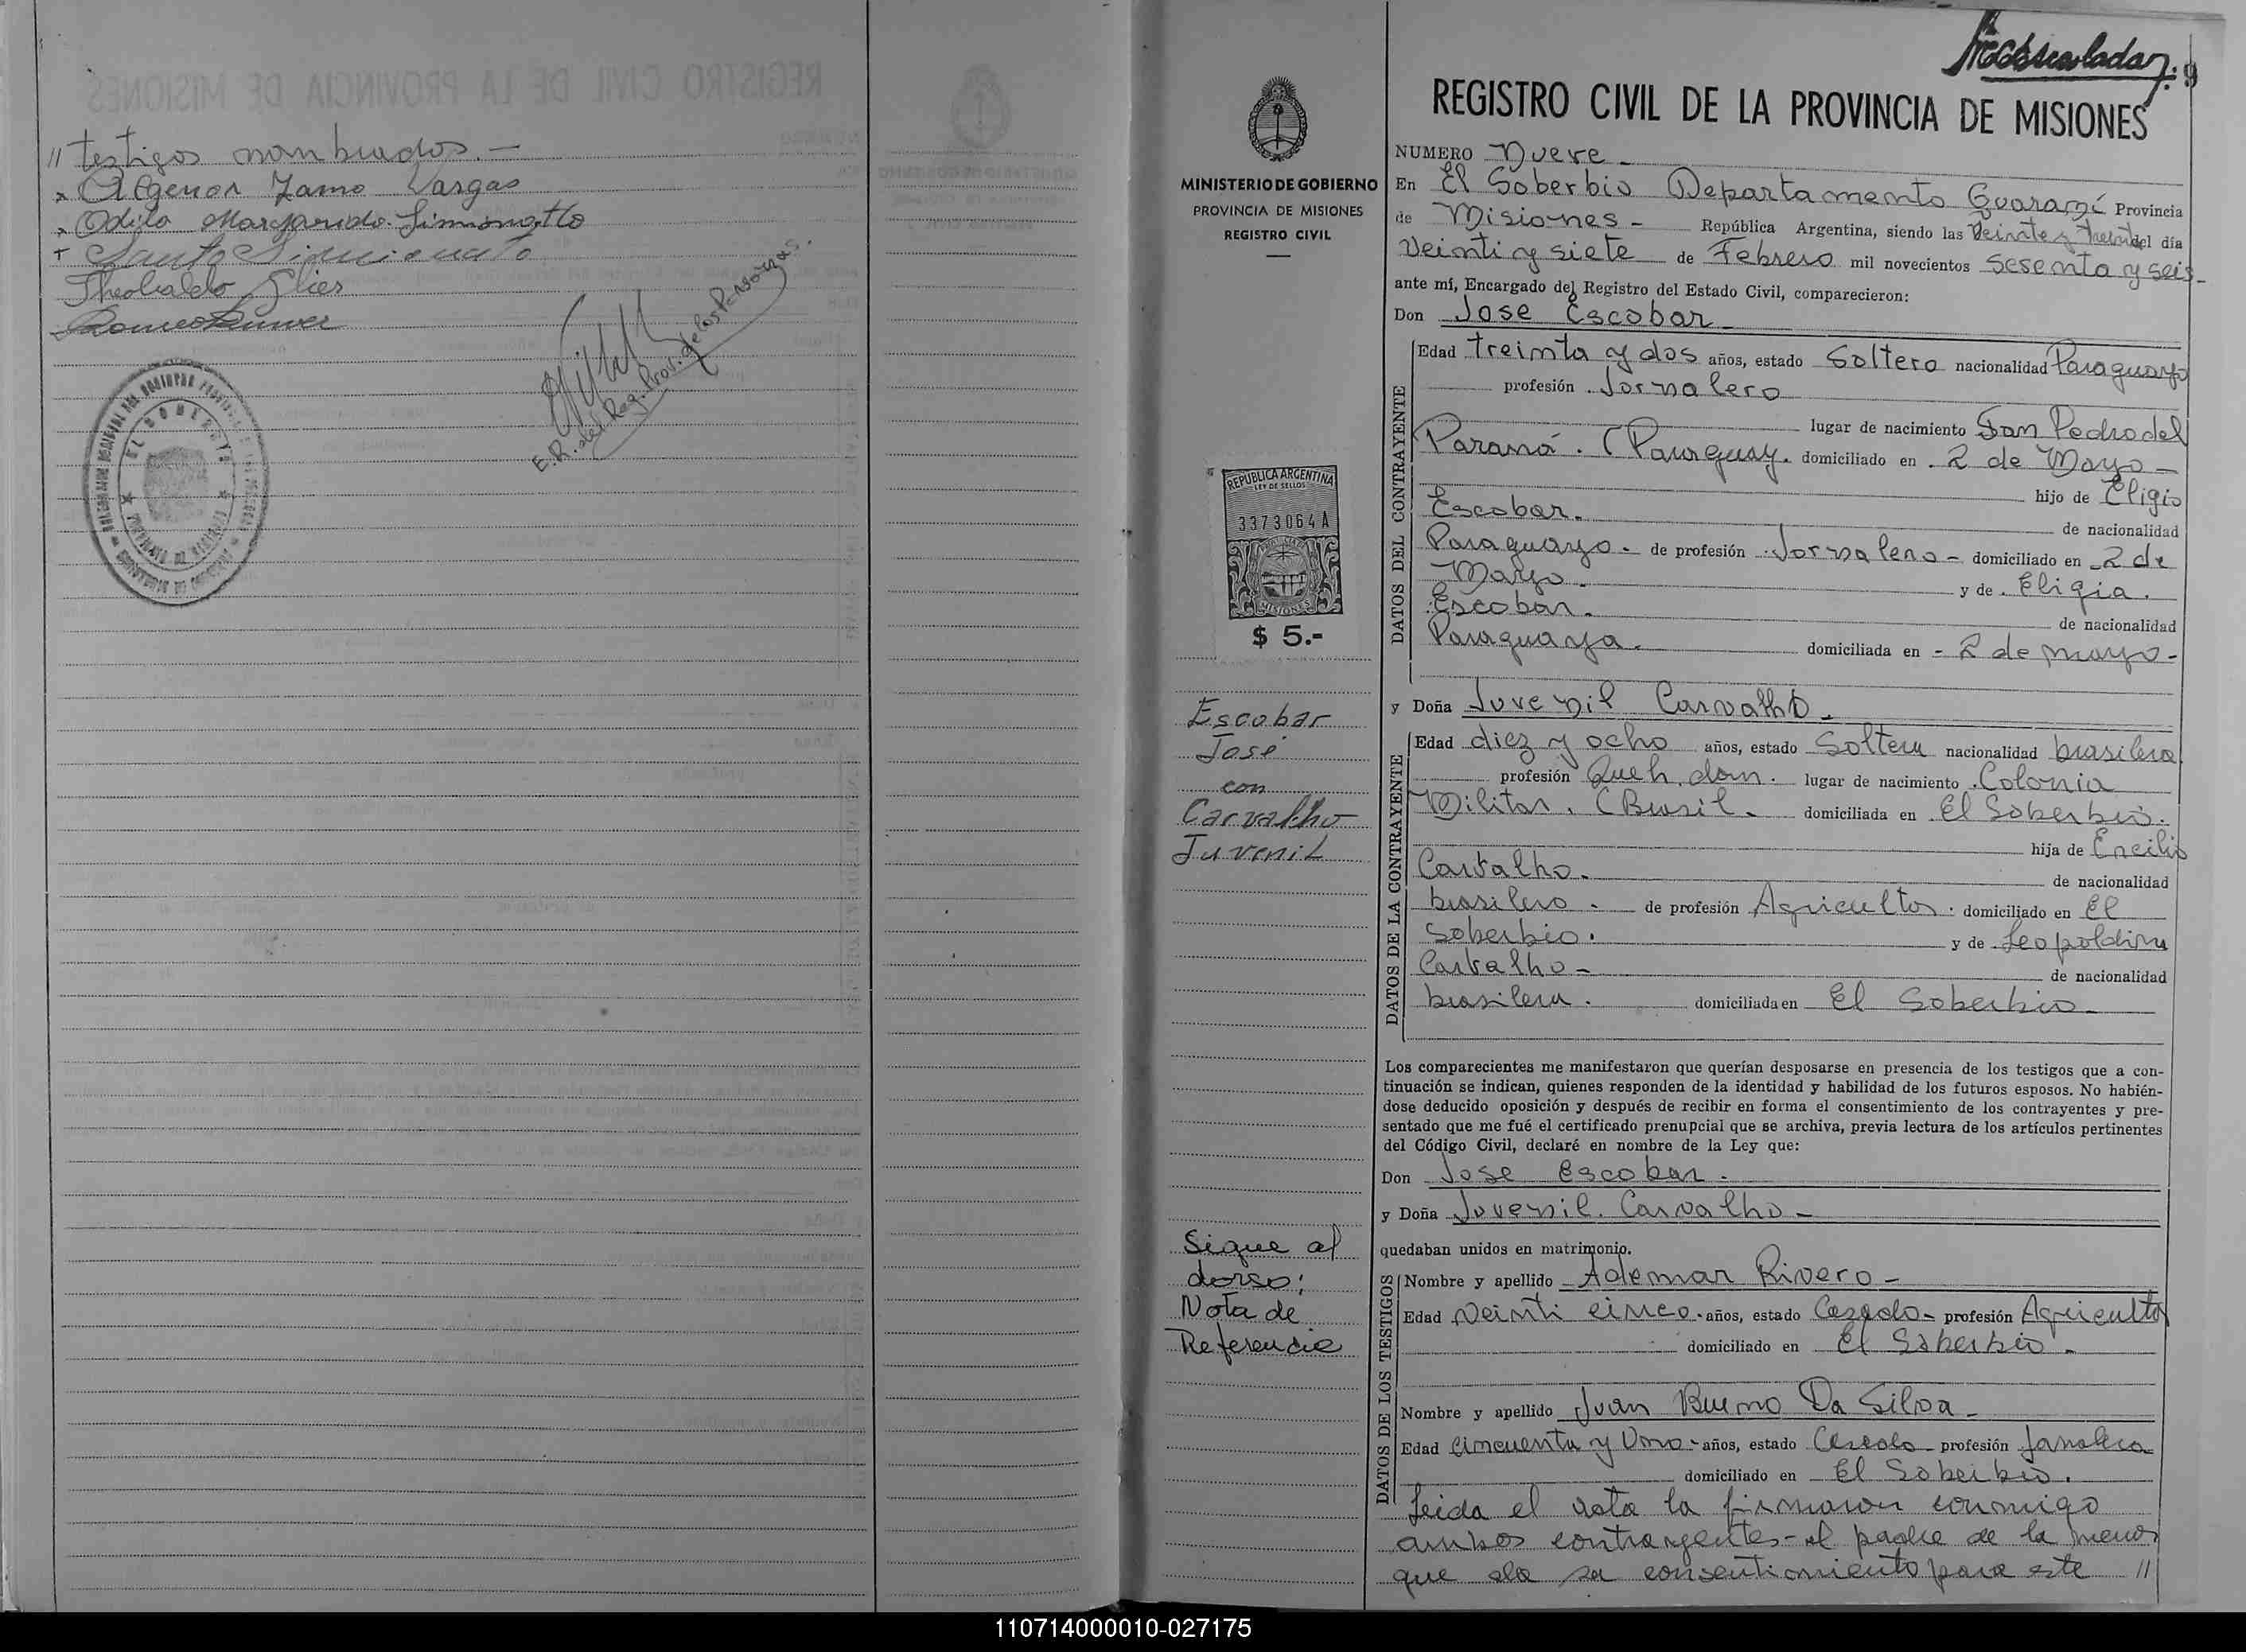 // testigos nombrados.—
x Algenor Jamo Vargas
x Odila Margarida Simionatto
+ Santo Simionato
Theobaldo Glier
E.R. del Reg. Prov. de las Personas.
EL SOBERBIO
9
REGISTRO CIVIL DE LA PROVINCIA DE MISIONES
MINISTERIO DE GOBIERNO
PROVINCIA DE MISIONES
REGISTRO CIVIL
NUMERO Nueve -
En El Soberbio Departamento Guaraní Provincia
de Misiones - República Argentina, siendo las Veinte y treinta del día
Veinti y siete de Febrero mil novecientos sesenta y seis -
ante mí, Encargado del Registro del Estado Civil, comparecieron:
Don Jose Escobar -
DATOS DEL CONTRAYENTE
Edad treinta y dos años, estado Soltero nacionalidad Paraguayo
profesión Jornalero
lugar de nacimiento San Pedro del
Paraná. (Paraguay. domiciliado en 2 de Mayo -
hijo de Eligio
Escobar. de nacionalidad
Paraguayo - de profesión Jornalero - domiciliado en 2 de
Mayo - y de Eligia.
Escobar. de nacionalidad
Paraguaya. domiciliada en - 2 de mayo -
REPUBLICA ARGENTINA
LEY DE SELLOS
3373064 A
MISIONES
$ 5.-
Escobar
José
con
Carvalho
Juvenil
y Doña Juvenil Carvalho -
DATOS DE LA CONTRAYENTE
Edad diez y ocho años, estado Soltera nacionalidad brasilera
profesión Queh. dom. lugar de nacimiento Colonia
Militar. (Brasil - domiciliada en El Soberbio.
hija de Ercilio
Carvalho. de nacionalidad
brasilero - de profesión Agricultor. domiciliado en El
Soberbio. y de Leopoldina
Carvalho - de nacionalidad
brasilera. domiciliada en El Soberbio -
Los comparecientes me manifestaron que querían desposarse en presencia de los testigos que a con-
tinuación se indican, quienes responden de la identidad y habilidad de los futuros esposos. No habién-
dose deducido oposición y después de recibir en forma el consentimiento de los contrayentes y pre-
sentado que me fué el certificado prenupcial que se archiva, previa lectura de los artículos pertinentes
del Código Civil, declaré en nombre de la Ley que:
Don Jose Escobar.
y Doña Juvenil. Carvalho -
quedaban unidos en matrimonio.
Sigue al
dorso:
Nota de
Referencia
DATOS DE LOS TESTIGOS
Nombre y apellido Ademar Rivero -
Edad Veinti cinco - años, estado Casado - profesión Agricultor
domiciliado en El Soberbio -
Nombre y apellido Juan Bueno Da Silva -
Edad Cincuenta y Uno - años, estado Casado - profesión Jornalero
domiciliado en El Soberbio.
Leida el acta la firmaron conmigo
ambos contrayentes - el padre de la menor
que da su consentimiento para este //
110714000010-027175